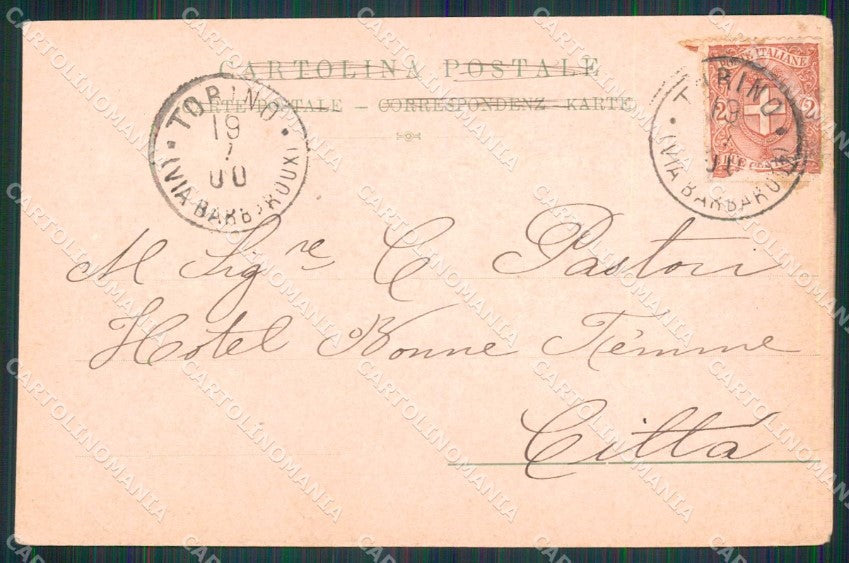 CARTOLINA POSTALE
CARTE POSTALE – CORRESPONDENZ-KARTE
TORINO
19
7
00
(VIA BARBAROUX)
POSTE ITALIANE
2
TORINO
7
(VIA BARBAROUX)
M Sigre C Pastori
Hotel Bonne Femme
Città
CARTOLINOMANIA